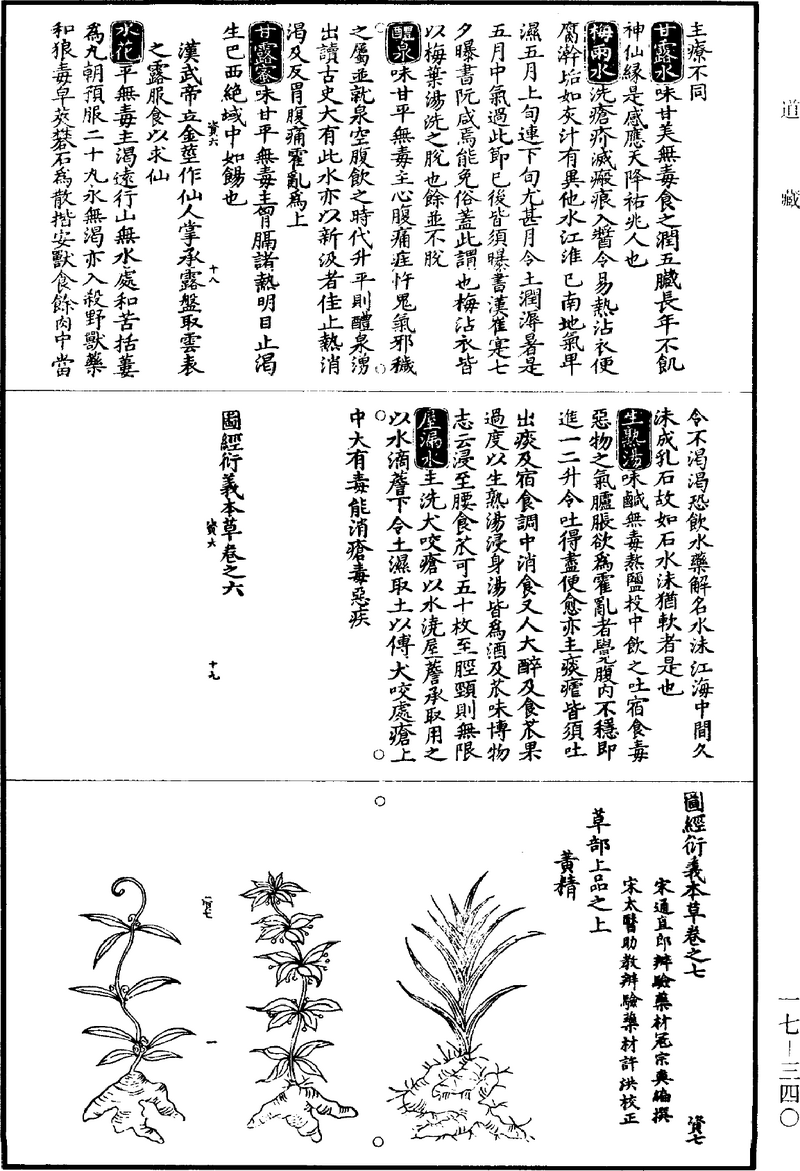 道藏
主療不同
甘露水味甘美無毒食之潤五臟長年不飢
神仙緣是感應天降祐兆人也
梅雨水洗瘡疥滅瘢痕入醬令易熟沾衣便
腐澣垢如灰汁有異他水江淮已南地氣卑
濕五月上旬連下旬尤甚月令土潤溽暑是
五月中氣過此節已後皆須曝書漢崔寔七
夕曝書阮咸焉能免俗蓋此謂也梅沾衣皆
以梅葉湯洗之脫也餘並不脫
醴泉味甘平無毒主心腹痛疰忤鬼氣邪穢
之屬並就泉空腹飲之時代升平則醴泉湧
出讀古史大有此水亦以新汲者佳止熱消
渴及反胃腹痛霍亂為上
甘露蜜味甘平無毒主胷膈諸熱明目止渴
生巴西絕域中如餳也
資六
十八
漢武帝立金莖作仙人掌承露盤取雲表
之露服食以求仙
水花平無毒主渴遠行山無水處和苦栝蔞
為丸朝預服二十丸永無渴亦入殺野獸藥
和狼毒皁莢礜石為散揩安獸食餘肉中當
令不渴渴恐飲水藥解名水沫江海中間久
沫成乳石故如石水沫猶軟者是也
生熟湯味鹹無毒熱鹽投中飲之吐宿食毒
惡物之氣臚脹欲為霍亂者覺腹內不穩即
進一二升令吐得盡便愈亦主痰瘧皆須吐
出痰及宿食調中消食又人大醉及食苽果
過度以生熟湯浸身湯皆為酒及苽味博物
志云浸至腰食苽可五十枚至脛頸則無限
屋漏水主洗犬咬瘡以水澆屋簷承取用之
以水滴簷下令土濕取土以傅犬咬處瘡上
中大有毒能消瘡毒惡疾
圖經衍義本草卷之六
資六
十九
圖經衍義本草卷之七
資七
宋通直郎辨驗藥材寇宗奭編撰
宋太醫助教辨驗藥材許洪校正
草部上品之上
黃精
資七
一
一七–三四〇